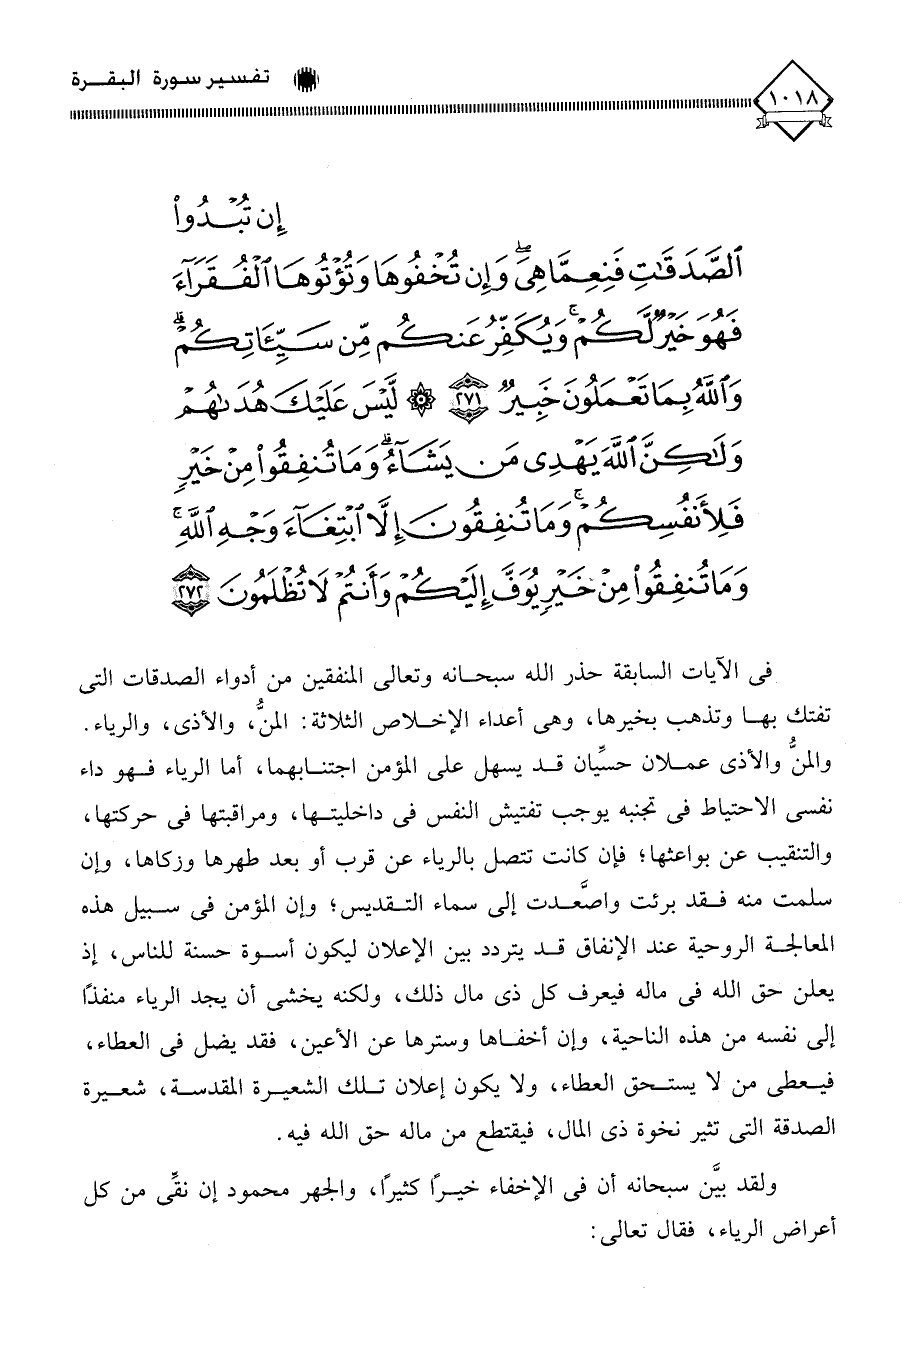 تفسير سورة البقرة
١٠١٨
إِن تُبْدُوا۟
ٱلصَّدَقَٰتِ فَنِعِمَّا هِىَ ۖ وَإِن تُخْفُوهَا وَتُؤْتُوهَا ٱلْفُقَرَآءَ
فَهُوَ خَيْرٌ لَّكُمْ ۚ وَيُكَفِّرُ عَنكُم مِّن سَيِّـَٔاتِكُمْ ۗ
وَٱللَّهُ بِمَا تَعْمَلُونَ خَبِيرٌ ٢٧١ ۞ لَّيْسَ عَلَيْكَ هُدَىٰهُمْ
وَلَٰكِنَّ ٱللَّهَ يَهْدِى مَن يَشَآءُ ۗ وَمَا تُنفِقُوا۟ مِنْ خَيْرٍ
فَلِأَنفُسِكُمْ ۚ وَمَا تُنفِقُونَ إِلَّا ٱبْتِغَآءَ وَجْهِ ٱللَّهِ ۚ
وَمَا تُنفِقُوا۟ مِنْ خَيْرٍ يُوَفَّ إِلَيْكُمْ وَأَنتُمْ لَا تُظْلَمُونَ ٢٧٢
فى الآيات السابقة حذر الله سبحانه وتعالى المنفقين من أدواء الصدقات التى
تفتك بها وتذهب بخيرها، وهى أعداء الإخلاص الثلاثة: المنُّ، والأذى، والرياء.
والمنُّ والأذى عملان حسيَّان قد يسهل على المؤمن اجتنابهما، أما الرياء فهو داء
نفسى الاحتياط فى تجنبه يوجب تفتيش النفس فى داخليتها، ومراقبتها فى حركتها،
والتنقيب عن بواعثها؛ فإن كانت تتصل بالرياء عن قرب أو بعد طهرها وزكاها، وإن
سلمت منه فقد برئت واصعَّدت إلى سماء التقديس؛ وإن المؤمن فى سبيل هذه
المعالجة الروحية عند الإنفاق قد يتردد بين الإعلان ليكون أسوة حسنة للناس، إذ
يعلن حق الله فى ماله فيعرف كل ذى مال ذلك، ولكنه يخشى أن يجد الرياء منفذًا
إلى نفسه من هذه الناحية، وإن أخفاها وسترها عن الأعين، فقد يضل فى العطاء،
فيعطى من لا يستحق العطاء، ولا يكون إعلان تلك الشعيرة المقدسة، شعيرة
الصدقة التى تثير نخوة ذى المال، فيقتطع من ماله حق الله فيه.
ولقد بيَّن سبحانه أن فى الإخفاء خيرًا كثيرًا، والجهر محمود إن نقِّى من كل
أعراض الرياء، فقال تعالى: